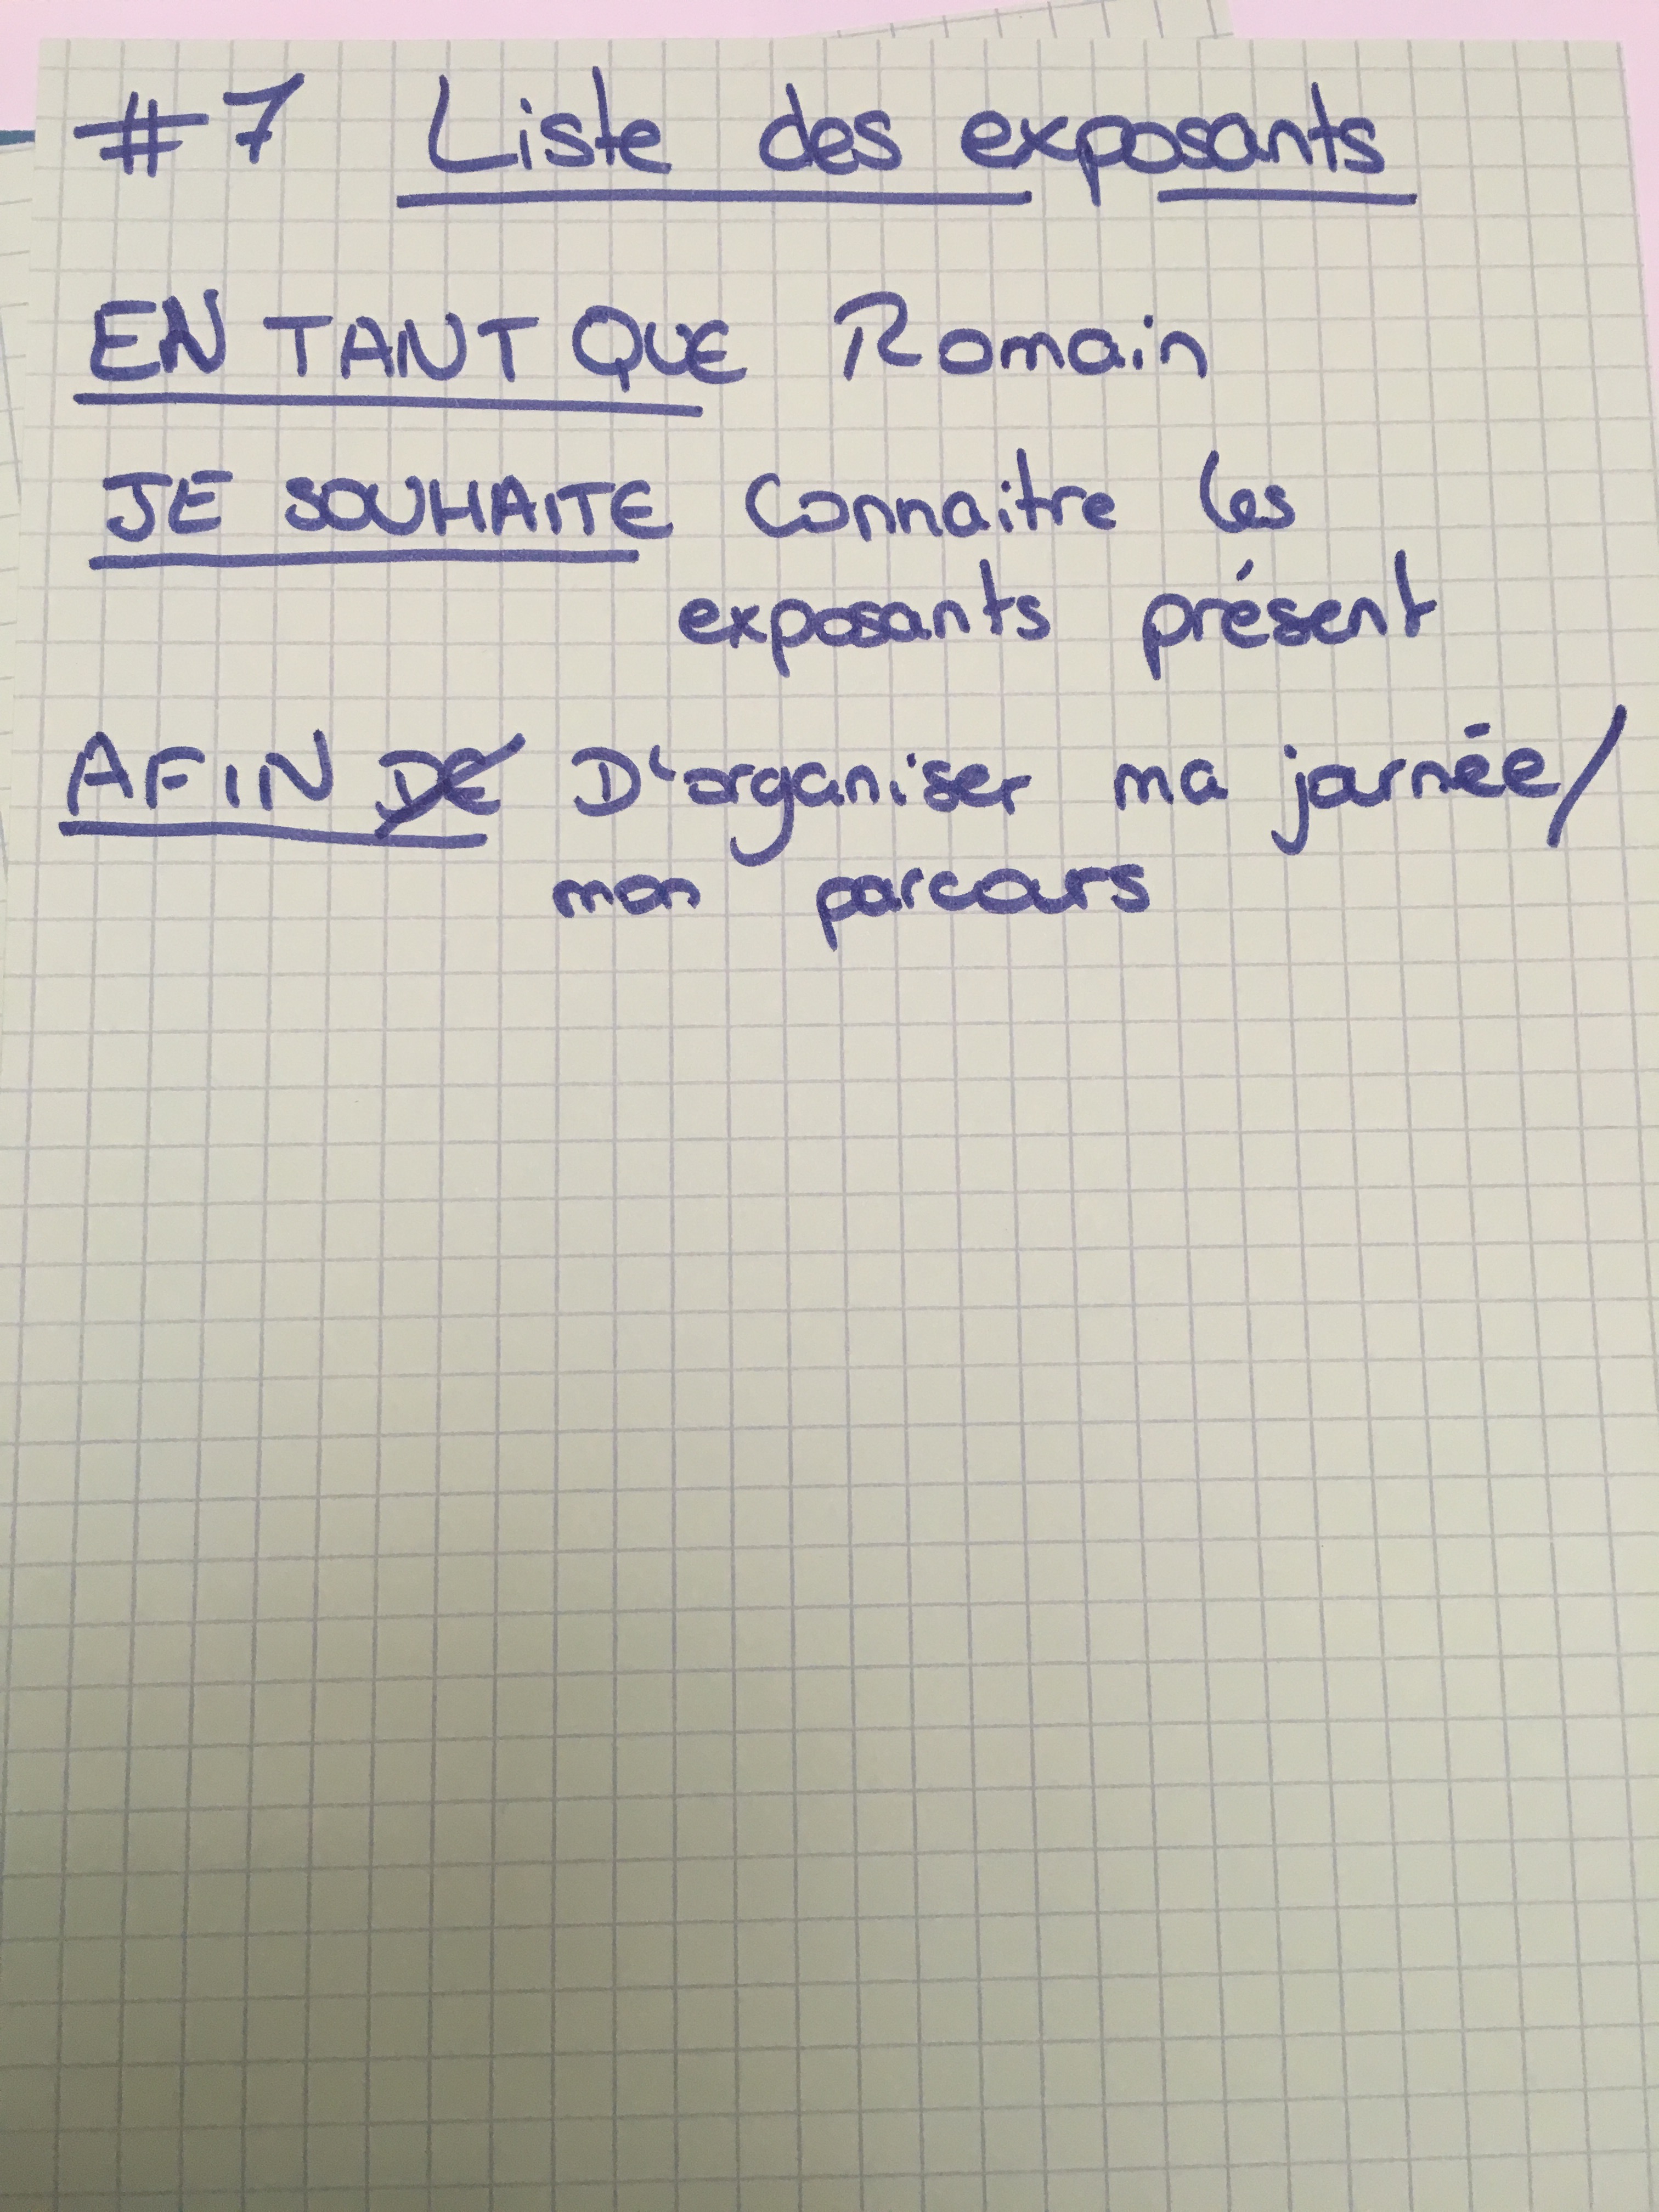 #7 Liste des exposants
EN TANT QUE Romain
JE SOUHAITE Connaitre les
exposants présent
AFIN DE D'organiser ma journée/
mon parcours